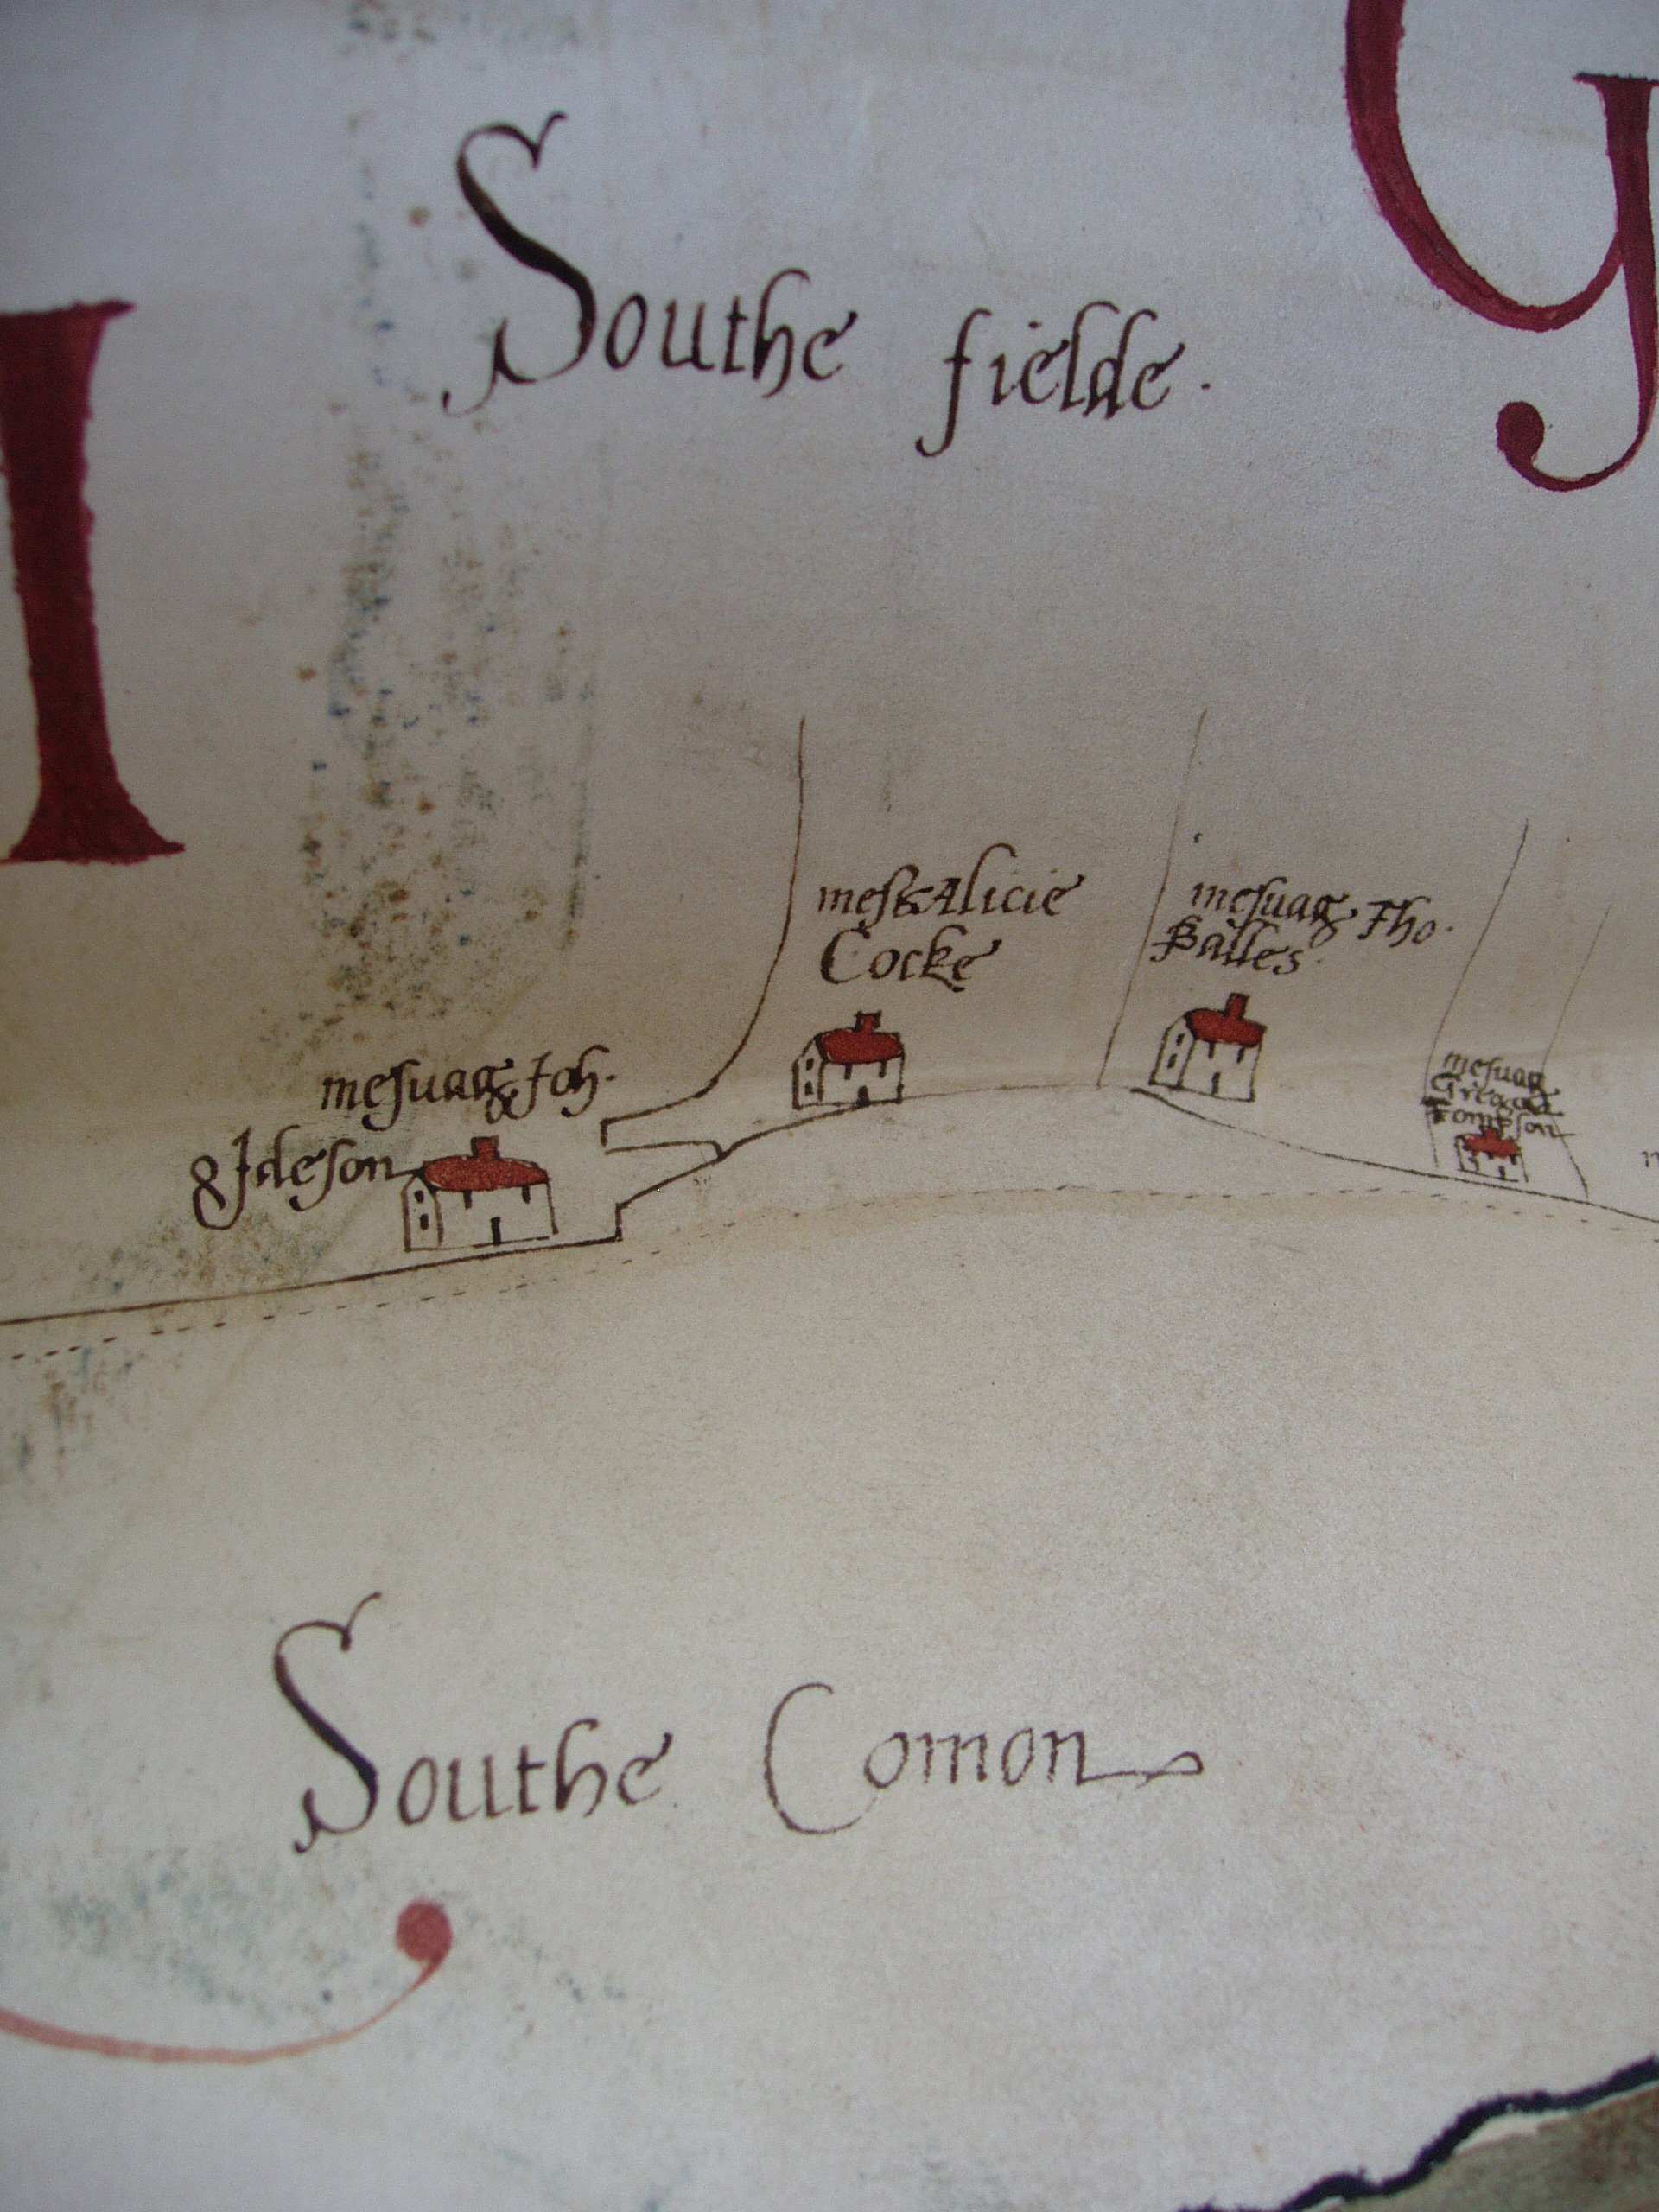 I
G
Southe fielde.
mess Alicie
Cocke
mesuag Tho.
Balles.
mesuag
Gregor
Tompson
mesuag Joh.
Ideson
Southe Comon